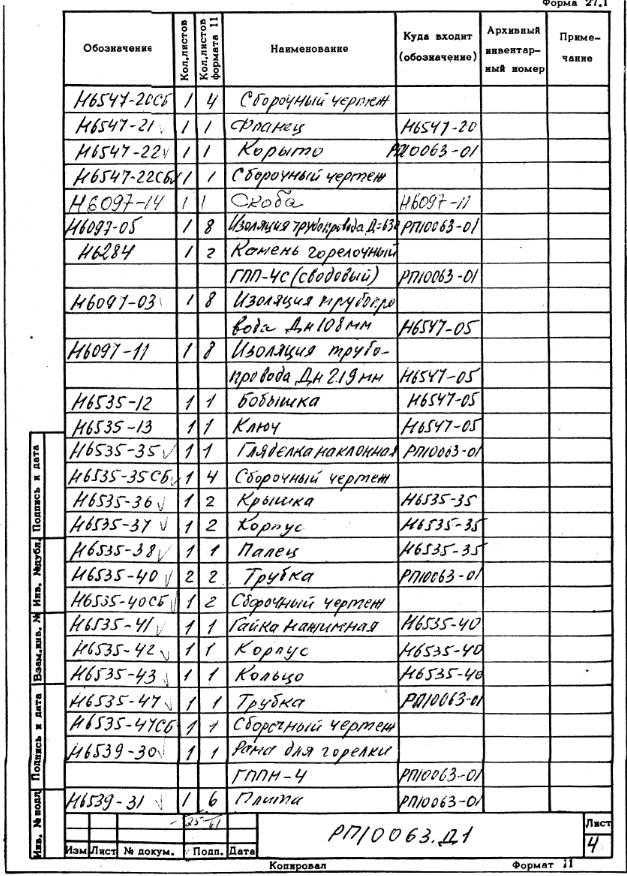 Форма 27.1
Обозначение Кол.листов Кол.листов формата 11 Наименование Куда входит (обозначение) Архивный инвентар-ный номер Приме-чание
Н6547-20СБ 1 4 Сборочный чертеж
Н6547-21 1 1 Фланец Н6547-20
Н6547-22 1 1 Корыто РП10063-01
Н6547-22СБ 1 1 Сборочный чертеж
Н6097-14 1 1 Скоба Н6097-11
Н6097-05 1 8 Изоляция трубопровода РП10063-01
Н6284 1 2 Камень горелочный
ГПП-4С (сводовый) РП10063-01
Н6097-03 1 8 Изоляция трубопро
вода Дн108мм Н6547-05
Н6097-11 1 8 Изоляция трубо-
провода Дн 219мм Н6547-05
Н6535-12 1 1 Бобышка Н6547-05
Н6535-13 1 1 Ключ Н6547-05
Н6535-35 1 1 Гляделка наклонная РП10063-01
Н6535-35СБ 1 4 Сборочный чертеж
Н6535-36 1 2 Крышка Н6535-35
Н6535-37 1 2 Корпус Н6535-35
Н6535-38 1 1 Палец Н6535-35
Н6535-40 2 2 Трубка РП10063-01
Н6535-40СБ 1 2 Сборочный чертеж
Н6535-41 1 1 Гайка нажимная Н6535-40
Н6535-42 1 1 Корпус Н6535-40
Н6535-43 1 1 Кольцо Н6535-40
Н6535-47 1 1 Трубка РП10063-01
Н6535-47СБ 1 1 Сборочный чертеж
Н6539-30 1 1 Рама для горелки
ГППН-4 РП10063-01
Н6539-31 1 6 Плита РП10063-01
Инв. № подл. Подпись и дата Взам.инв. № Инв. №дубл. Подпись и дата
РП10063.Д1
Лист
4
Изм Лист № докум. Подп. Дата
Копировал Формат 11